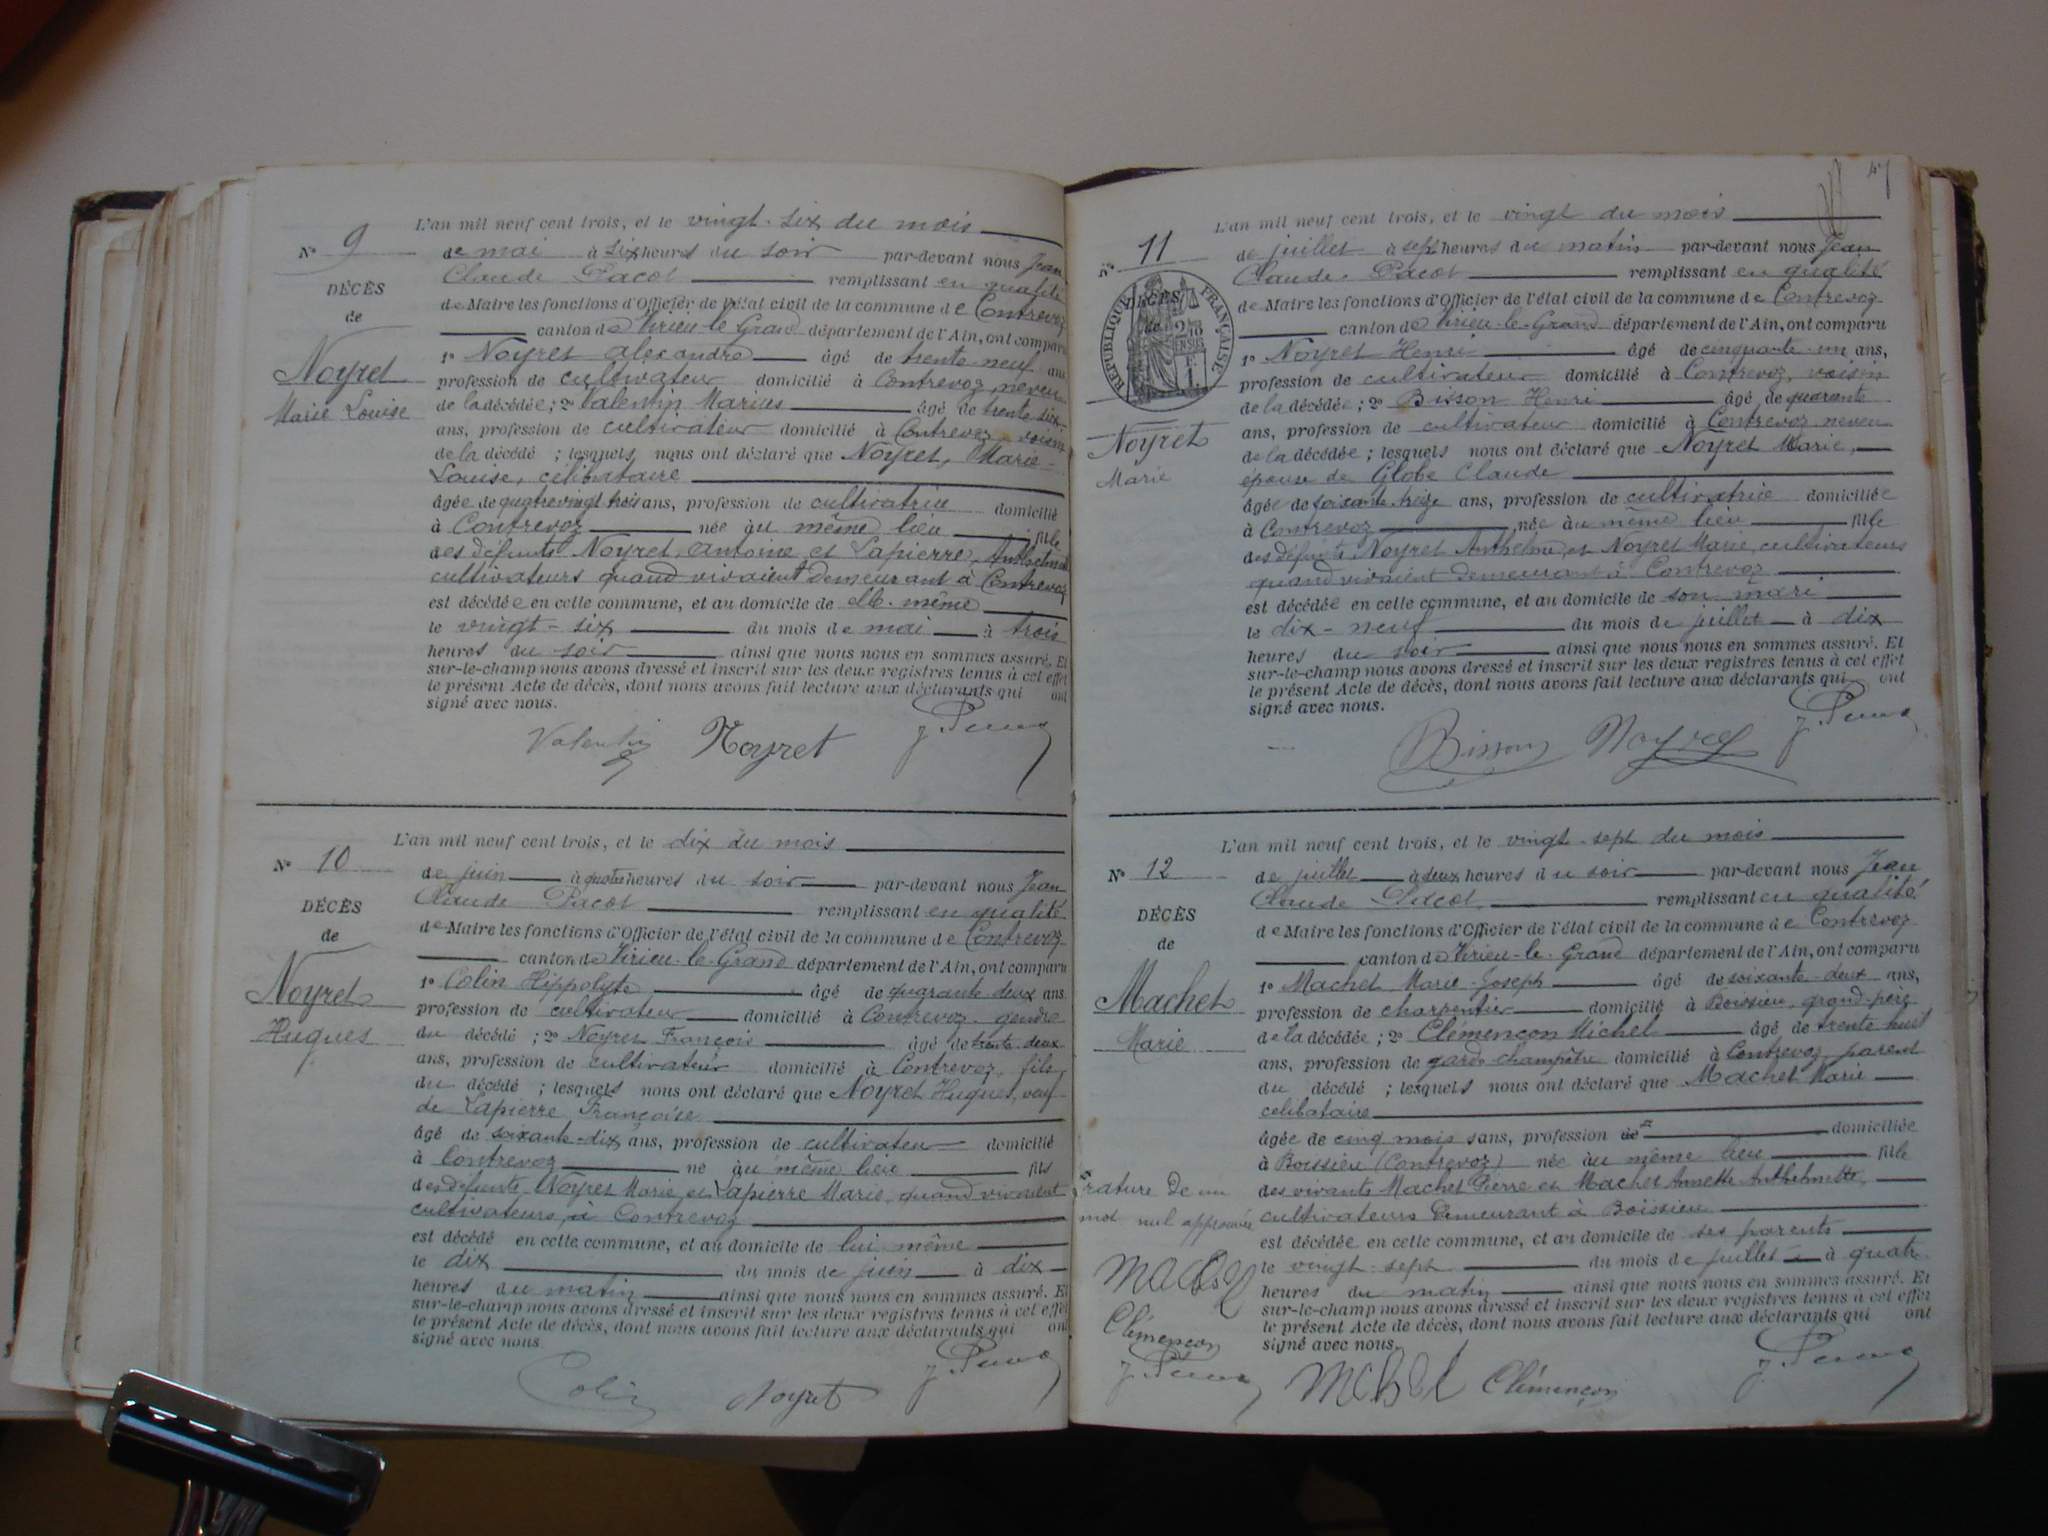 L'an mil neuf cent trois, et le vingt-six du mois
N° 9
de mai à six heures du soir par-devant nous Jean
Claude Pacot remplissant en qualité
DÉCÈS
de Maire les fonctions d'Officier de l'état civil de la commune de Contrevoz
de
canton de Virieu-le-Grand département de l'Ain, ont comparu
Noyret
1° Noyret Alexandre âgé de trente-neuf ans
profession de cultivateur domicilié à Contrevoz, neveu
Marie Louise
de la décédée; 2° Valentin Marius âgé de trente six
ans, profession de cultivateur domicilié à Contrevoz, voisin
de la décédé ; lesquels nous ont déclaré que Noyret, Marie-
Louise, célibataire
âgée de quatre vingt trois ans, profession de cultivatrice domicilié
à Contrevoz née au même lieu fille
des défunts Noyret, Antoine et Lapierre,
cultivateurs quand vivaient demeurant à Contrevoz
est décédée en cette commune, et au domicile de elle-même
le vingt-six du mois de mai à trois
heures du soir ainsi que nous nous en sommes assuré. Et
sur-le-champ nous avons dressé et inscrit sur les deux registres tenus à cet effet
le présent Acte de décès, dont nous avons fait lecture aux déclarants qui ont
signé avec nous.
Valentin Noyret
L'an mil neuf cent trois, et le dix du mois
N° 10
de juin à quatre heures du soir par-devant nous Jean
Claude Pacot remplissant en qualité
DÉCÈS
de Maire les fonctions d'Officier de l'état civil de la commune de Contrevoz
de
canton de Virieu-le-Grand département de l'Ain, ont comparu
Noyret
1° Colin Hippolyte âgé de quarante deux ans
profession de cultivateur domicilié à Contrevoz, gendre
Hugues
du décédé ; 2° Noyret François âgé de trente-deux
ans, profession de cultivateur domicilié à Contrevoz, fils
du décédé ; lesquels nous ont déclaré que Noyret Hugues, veuf
de Lapierre Françoise
âgé de soixante-dix ans, profession de cultivateur domicilié
à Contrevoz né au même lieu fils
des défunts Noyret Marie et Lapierre Marie, quand vivaient
cultivateurs à Contrevoz
est décédé en cette commune, et au domicile de lui même
le dix du mois de juin à dix
heures du matin ainsi que nous nous en sommes assuré. Et
sur-le-champ nous avons dressé et inscrit sur les deux registres tenus à cet effet
le présent Acte de décès, dont nous avons fait lecture aux déclarants qui ont
signé avec nous
Colin Noyret
47
L'an mil neuf cent trois, et le vingt du mois
N° 11
de juillet à sept heures du matin par-devant nous Jean
Claude Pacot remplissant en qualité
DÉCÈS
de
RÉPUBLIQUE FRANÇAISE
de Maire les fonctions d'Officier de l'état civil de la commune de Contrevoz
canton de Virieu-le-Grand département de l'Ain, ont comparu
1° Noyret Henri âgé de cinquante-un ans,
profession de cultivateur domicilié à Contrevoz, voisin
de la décédée ; 2° Bisson Henri âgé de quarante
Noyret
ans, profession de cultivateur domicilié à Contrevoz neveu
Marie
de la décédée ; lesquels nous ont déclaré que Noyret Marie,
épouse de Globe Claude
âgée de soixante treize ans, profession de cultivatrice domiciliée
à Contrevoz, née au même lieu fille
des défunts Noyret Anthelme et Noyret Marie, cultivateurs
quand vivaient demeurant à Contrevoz
est décédée en cette commune, et au domicile de son mari
le dix-neuf du mois de juillet à dix
heures du soir ainsi que nous nous en sommes assuré. Et
sur-le-champ nous avons dressé et inscrit sur les deux registres tenus à cet effet
le présent Acte de décès, dont nous avons fait lecture aux déclarants qui ont
signé avec nous.
Bisson Noyret
L'an mil neuf cent trois, et le vingt-sept du mois
N° 12
de juillet à deux heures du soir par-devant nous Jean
Claude Pacot remplissant en qualité
DÉCÈS
de Maire les fonctions d'Officier de l'état civil de la commune de Contrevoz
de
canton de Virieu-le-Grand département de l'Ain, ont comparu
Machet
1° Machet Marie-Joseph âgé de soixante-deux ans,
profession de charpentier domicilié à Boissieu, grand-père
Marie
de la décédée ; 2° Clémençon Michel âgé de trente huit
ans, profession de garde champêtre domicilié à Contrevoz, parent
du décédé ; lesquels nous ont déclaré que Machet Marie
celibataire
âgée de cinq mois sans, profession de domiciliée
à Boissieu (Contrevoz) née au même lieu fille
rature de un
des vivants Machet Pierre et Machet Annette Anthelmette,
mot nul approuvée
cultivateurs demeurant à Boissieu
est décédée en cette commune, et au domicile de ses parents
le vingt-sept du mois de juillet à quatre
heures du matin ainsi que nous nous en sommes assuré. Et
Machet
sur-le-champ nous avons dressé et inscrit sur les deux registres tenus à cet effet
Clémençon
le présent Acte de décès, dont nous avons fait lecture aux déclarants qui ont
signé avec nous.
Machet Clémençon